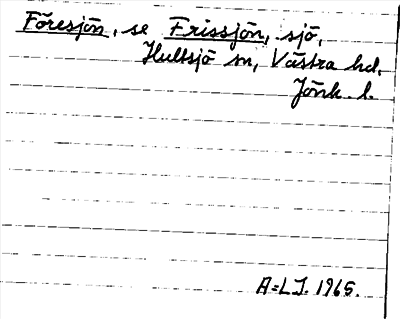 Föresjön, se Frissjön, sjö,
Hultsjö sn, Västra hd,
Jönk. l.
A=LJ. 1965.